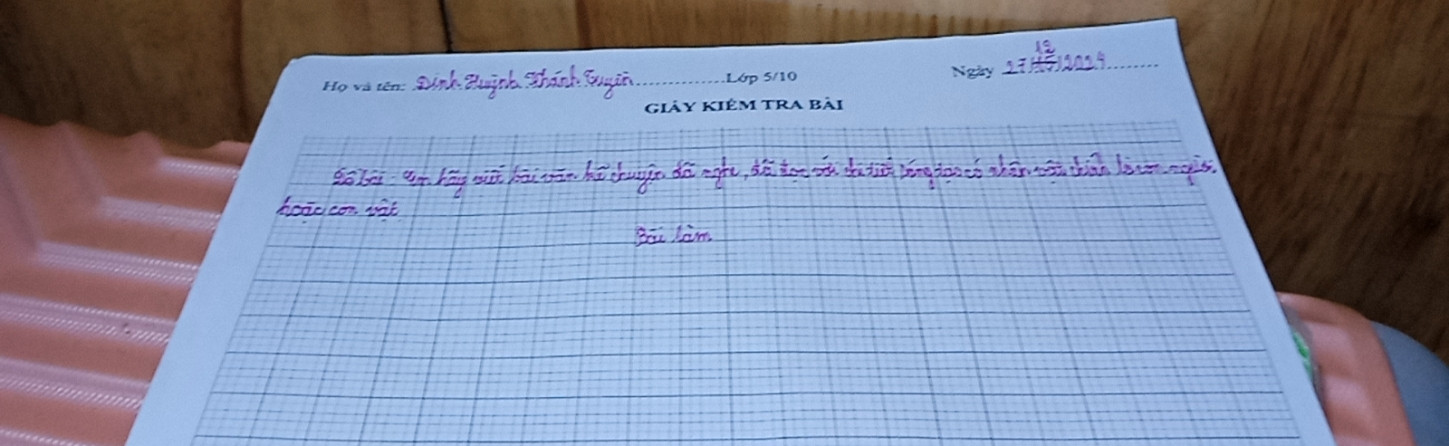 Họ và tên: Đinh Huỳnh Khánh Quyên Lớp 5/10 Ngày 27/12/2024
GIẤY KIỂM TRA BÀI
Đề bài: Em hãy viết bài văn kể chuyện đã nghe, đã đọc với chi tiết sáng tạo có nhân vật chính là con người
hoặc con vật
Bài làm